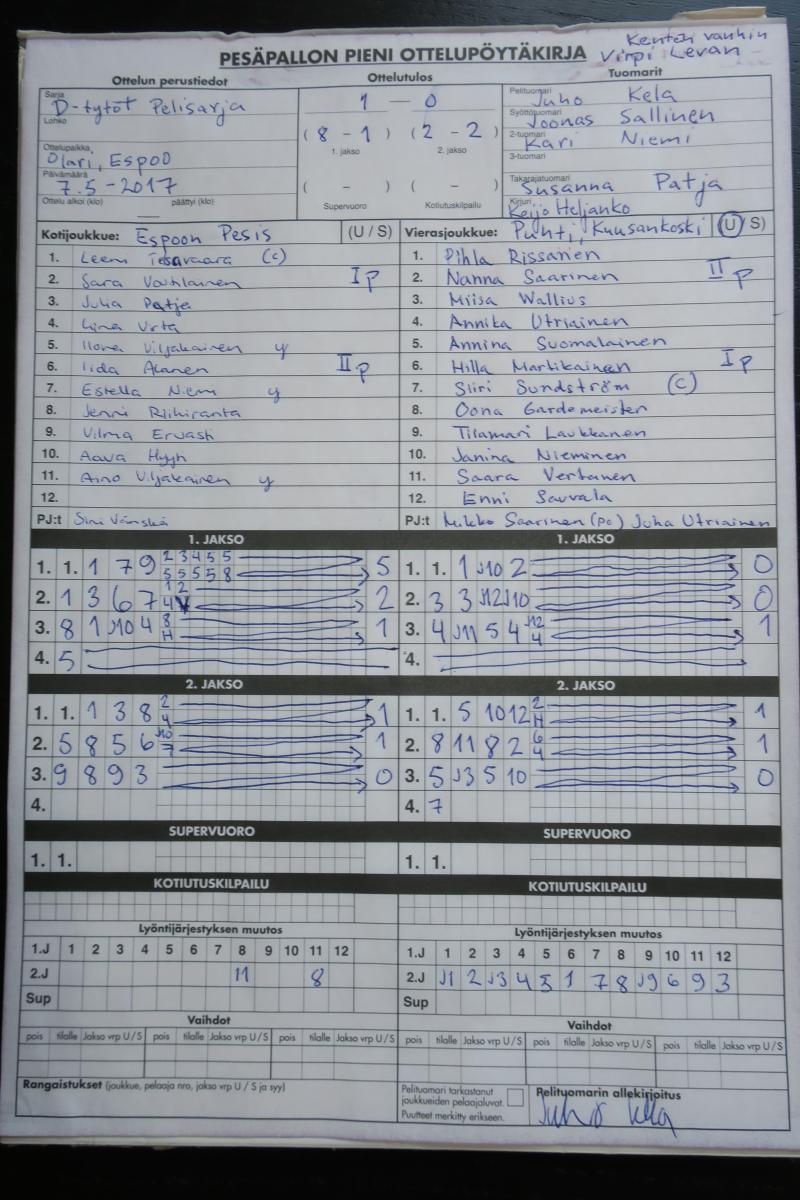 Kentän vanhin
PESÄPALLON PIENI OTTELUPÖYTÄKIRJA Virpi Levan
Ottelun perustiedot Ottelutulos Tuomarit
Sarja D-tytöt Pelisarja
Lohko
Ottelupaikka Olari, Espoo
Päivämäärä 7.5-2017
Ottelu alkoi (klo) päättyi (klo)
1 – 0
(8 – 1) (2 – 2)
1. jakso 2. jakso
( – ) ( – )
Supervuoro Kotiutuskilpailu
Pelituomari Juho Kela
Syöttötuomari Joonas Sallinen
2-tuomari Kari Niemi
3-tuomari
Takarajatuomari Susanna Patja
Kirjuri Keijo Heljanko
Kotijoukkue: Espoon Pesis (U / S)
1. Leeni (c)
2. Sara Voutilainen I p
3. Julia Patja
4. Virta
5. Ilona Viljakainen y
6. Iida Alanen II p
7. Estella Niemi y
8. Jenni Riihiranta
9. Vilma Ervasti
10. Aava
11. Aino Viljakainen y
12.
PJ:t Sini Vänskä
Vierasjoukkue: Puhti, Kuusankoski (U / S)
1. Pihla Rissanen
2. Nanna Saarinen II p
3. Miisa Wallius
4. Annika Utriainen
5. Annina Suomalainen
6. Hilla Martikainen I p
7. Siiri Sundström (C)
8. Oona Gardemeister
9. Tilamari Laukkanen
10. Janina Nieminen
11. Saara Vertanen
12. Enni Sauvala
PJ:t Mikko Saarinen (pc) Juha Utriainen
1. JAKSO
1. 1. 1 7 9 2 3 4 5 5 5
5 5 5 5 8
2. 1 3 6 7 1 2 2
4
3. 8 1 J10 4 8 1
H
4. 5
1. JAKSO
1. 1. 1 J10 2 0
2. 3 3 J12 J10 0
3. 4 J11 5 4 J12 1
4
4.
2. JAKSO
1. 1. 1 3 8 2 1
4
2. 5 8 5 6 J10 1
7
3. 9 8 9 3 0
4.
2. JAKSO
1. 1. 5 10 12 2 1
H
2. 8 11 8 2 6 1
4
3. 5 J3 5 10 0
4. 7
SUPERVUORO SUPERVUORO
1. 1. 1. 1.
KOTIUTUSKILPAILU KOTIUTUSKILPAILU
Lyöntijärjestyksen muutos
1.J 1 2 3 4 5 6 7 8 9 10 11 12
2.J 11 8
Sup
Lyöntijärjestyksen muutos
1.J 1 2 3 4 5 6 7 8 9 10 11 12
2.J J1 2 J3 4 5 1 7 8 J9 6 9 3
Sup
Vaihdot Vaihdot
pois tilalle Jakso vrp U / S pois tilalle Jakso vrp U / S pois tilalle Jakso vrp U / S
pois tilalle Jakso vrp U / S pois tilalle Jakso vrp U / S pois tilalle Jakso vrp U / S
Rangaistukset (joukkue, pelaaja nro, jakso vrp U / S ja syy)
Pelituomari tarkastanut
joukkueiden pelaajaluvat.
Puutteet merkitty erikseen.
Pelituomarin allekirjoitus
Juho Kela